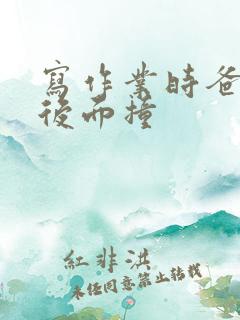 寫作業時爸
後而撞
紅非洪
未經同意禁止轉載